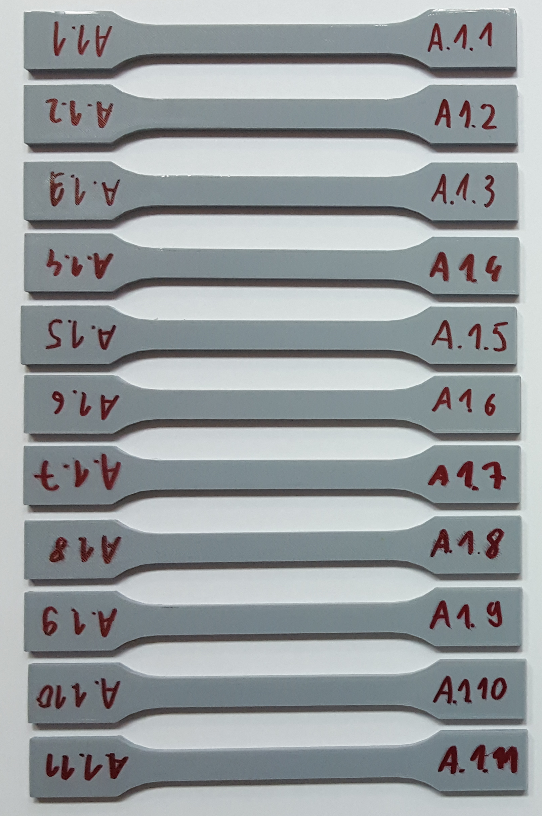 A1.1 A.1.1
A.1.2 A1.2
A.1.3 A.1.3
A.1.4 A1.4
A.1.5 A.1.5
A1.6 A1.6
A.1.7 A1.7
A1.8 A.1.8
A.1.9 A1.9
A.1.10 A.1.10
A.1.11 A.1.11